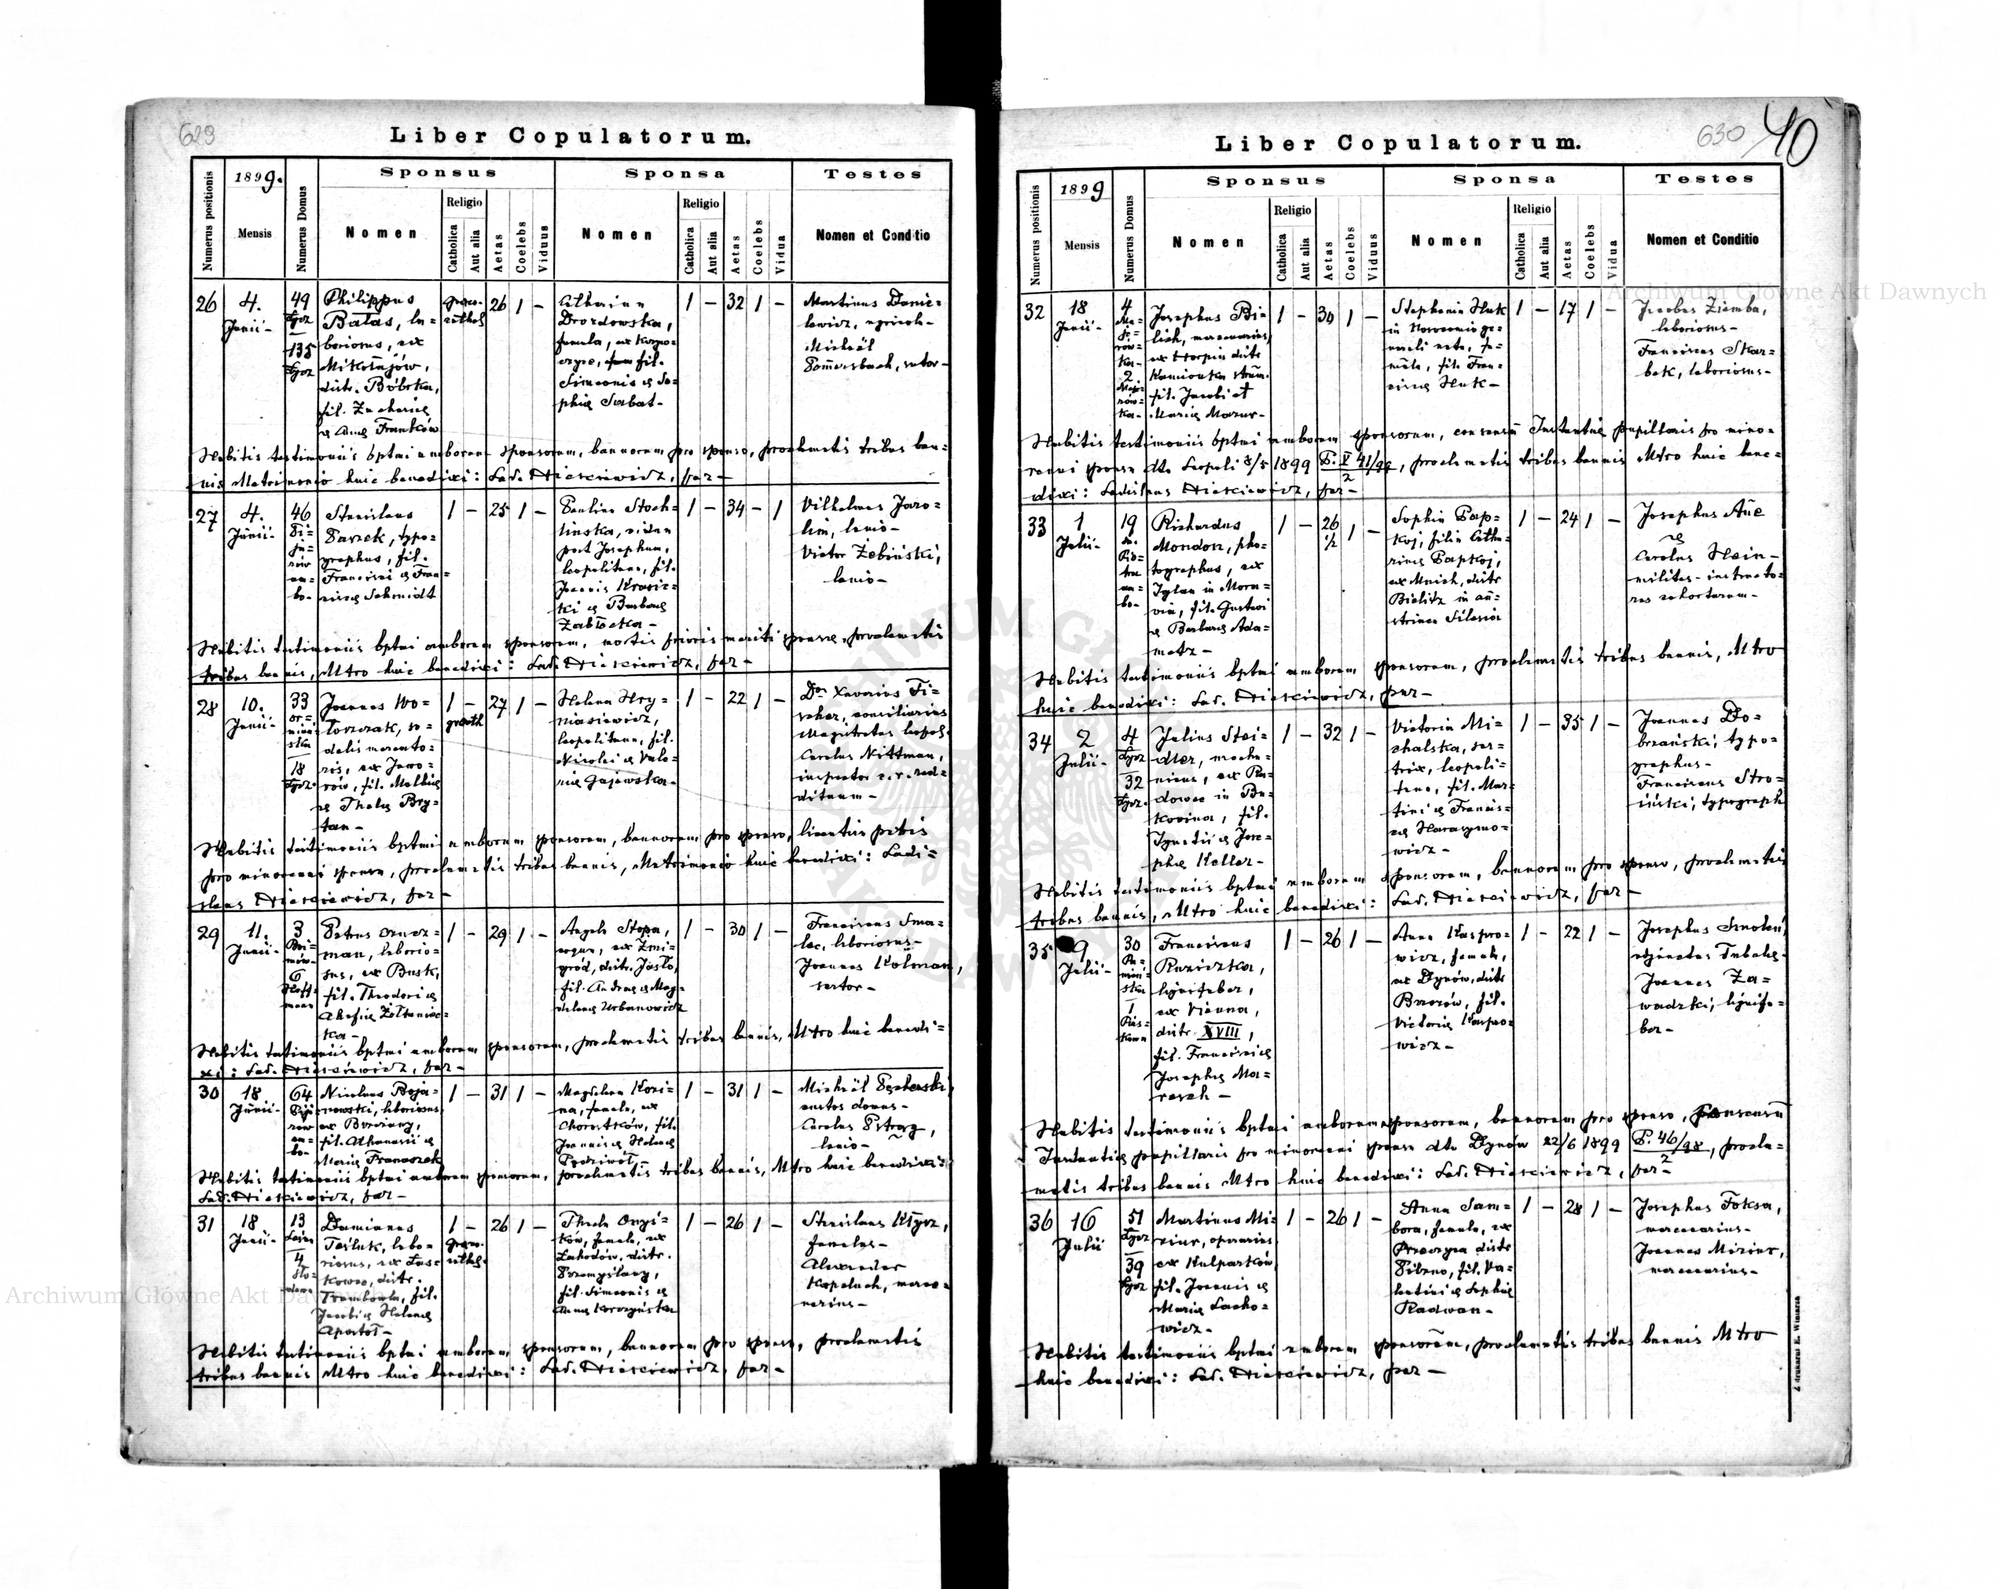 629
Liber Copulatorum.
Numerus positionis
1899.
Mensis
Numerus Domus
Sponsus
Nomen
Religio
Catholica
Aut alia
Aetas
Coelebs
Viduus
Sponsa
Nomen
Religio
Catholica
Aut alia
Aetas
Coelebs
Vidua
Testes
Nomen et Conditio
26
4.
Junii-
49
135
Philippus
Bałas, la=
boriosus, ex
Mikołajów,
distr. Bóbrka,
fil. Zachariae
Franków
graeco-
cathol
26 1 –
Catharina
Drozdowska,
famula, ex
fil.
Simeonis & So=
phiae Sabat-
1 – 32 1 –
Martinus Danie=
lewicz, agricola-
Michaël
sutor-
Habitis testimoniis bptmi amborum sponsorum, bannorum pro sponso, proclamatis tribus ban=
nis Matrimonio huic benedixi: Lad. par-
27
4.
Junii-
46
Stanislaus
Paszek, typo=
graphus, fil.
Francisci & Fran=
ciscae Schmidt
1 – 25 1 –
Paulina Stoch=
linska, vidua
post Josephum,
leopolitana, fil.
Joannis
& Barbarae
Zabłocka-
1 – 34 – 1
Vilhelmus Jaro=
lim, lanio-
Victor Żebiński,
lanio-
Habitis testimoniis bptmi amborum sponsorum, mortis prioris mariti sponsae, proclamatis
tribus bannis, Mtro huic benedixi: Lad. par-
28
10.
Junii-
33
18
Joannes Wo=
łoszczak, so=
dalis mercato=
ris, ex Jawo=
rów, fil.
& Theclae Bry=
tan-
1 –
27 1 –
Helena Hry=
niasiewicz,
leopolitana, fil.
Nicolai & Vale=
riae Gajewska-
1 – 22 1 –
Dr Xaverius Fi=
scher, consiliarius
Magistratus leopol.
Carolus Nittman,
inspector
Habitis testimoniis bptmi amborum sponsorum, bannorum pro sponso, licentiis patris
pro minorenni sponsa, proclamatis tribus bannis, Matrimonio huic benedixi: Ladi=
slaus par-
29
11.
Junii-
3
6
Petrus
man, laborio=
sus, ex Busk,
fil. Theodori &
1 – 29 1 –
Angela Stopa,
ex Żmi=
gród, distr. Jasło,
fil. Andreae & Mag=
dalenae Urbanowicz
1 – 30 1 –
Franciscus Sma=
lec, laboriosus-
Joannes Kolman,
sartor-
Habitis testimoniis bptmi amborum sponsorum, proclamatis tribus bannis, Mtro huic benedi=
xi: Lad. par-
30
18
Junii-
64
Nicolaus Boja=
nowski, laboriosus
ex Brzeżany,
fil. Athanasii &
Mariae Franaszek
1 – 31 1 –
Magdalena Kozi=
na, famula, ex
Chorostków, fil.
Joannis & Helenae
1 – 31 1 –
Michaël
custos domus-
Carolus
lanio-
Habitis testimoniis bptmi amborum sponsorum, proclamatis tribus bannis, Mtro huic benedixi:
Lad. par-
31
18
Junii-
13
4
Damianus
labo=
riosus, ex Las=
kowce, distr.
Trembowla, fil.
Jacobi & Helenae
Apostoł-
1 –
graeco-
cathol.
26 1 –
Thecla Onyś=
ków, famula, ex
Lahodów, distr.
Przemyślany,
fil. Simeonis &
Annae
1 – 26 1 –
Stanislaus
famulus-
Alexander
merce=
narius-
Habitis testimoniis bptmi amborum sponsorum, bannorum pro sponso, proclamatis
tribus bannis Mtro huic benedixi: Lad. par-
630
40
Liber Copulatorum.
Numerus positionis
1899
Mensis
Numerus Domus
Sponsus
Nomen
Religio
Catholica
Aut alia
Aetas
Coelebs
Viduus
Sponsa
Nomen
Religio
Catholica
Aut alia
Aetas
Coelebs
Vidua
Testes
Nomen et Conditio
32
18
Junii-
4
2
Josephus Bi=
lich, mercenarius,
distr
Kamionka strum.
fil. Jacobi et
Mariae Mazur-
1 – 30 1 –
Stephania Huk
fa=
mula, fil. Fran=
ciscae Huk-
1 – 17 1 –
Jacobus Ziemba,
laboriosus-
Franciscus Skar=
bek, laboriosus-
Habitis testimoniis bptmi amborum sponsorum, consensu Instantiae pupillaris pro mino=
renni sponsa dto Leopoli 8/5 1899 P. V 41/99/2, proclamatis tribus bannis Mtro huic bene=
dixi: Ladislaus par-
33
1
Julii-
19
Richardus
Mondon, pho=
tographus, ex
Iglau in Mora=
via, fil. Gustavi
& Barbarae Ada=
metz-
1 – 26 1/2 1 –
Sophia Pap=
koj, filia Catha=
rinae Papkoj,
ex Mnich, distr
Bielitz in au=
striaca Silesia
1 – 24 1 –
Josephus Aue
&
Carolus Hein-
milites-instructo=
res cohortarum-
Habitis testimoniis bptmi amborum sponsorum, proclamatis tribus bannis, Mtro
huic benedixi: Lad. par-
34
2
Julii-
4
32
Julius Stei=
dler, mecha=
nicus, ex Ra=
dowce in Bu=
kovina, fil.
Ignatii & Jose=
phae Keller-
1 – 32 1 –
Victoria Mi=
chalska, sar=
trix, leopoli=
tana, fil. Mar=
tini & Francis=
cae Harasymo=
wicz-
1 – 35 1 –
Joannes Do=
brzański, typo=
graphus-
Franciscus Stro=
iński, typograph
Habitis testimoniis bptmi amborum sponsorum, bannorum pro sponso, proclamatis
tribus bannis, Mtro huic benedixi: Lad. par-
35
9
Julii-
30
1
Franciscus
Ruziczka,
lignifaber,
ex Vienna,
distr. XVIII,
fil. Francisci &
Josephae Ma=
resch-
1 – 26 1 –
Anna Kaspro=
wicz, famula,
ex Dynów, distr
Brzozów, fil.
Victoriae Kaspro=
wicz-
1 – 22 1 –
Josephus Smoleń,
Joannes Za=
wadzki, lignifa=
ber-
Habitis testimoniis bptmi amborum sponsorum, bannorum pro sponso, consensu
Instantiae pupillaris pro minorenni sponsa dto Dynów 22/6 1899 P. 46/98/2, procla=
matis tribus bannis Mtro huic benedixi: Lad. par-
36
16
Julii
51
39
Martinus Mi=
ziur, operarius
ex Kulparków
fil. Joannis &
Mariae Lacho=
wicz-
1 – 26 1 –
Anna Sam=
bora, famula, ex
Przeczyca distr
Pilzno, fil. Va=
lentini & Sophiae
Radwan-
1 – 28 1 –
Josephus Foksa,
mercenarius-
Joannes Miziur,
mercenarius-
Habitis testimoniis bptmi amborum sponsorum, proclamatis tribus bannis Mtro
huic benedixi: Lad. par-
Z drukarni E. Winiarza
Archiwum Główne Akt Dawnych
Archiwum Główne Akt Dawnych
ARCHIWUM GŁÓWNE AKT DAWNYCH